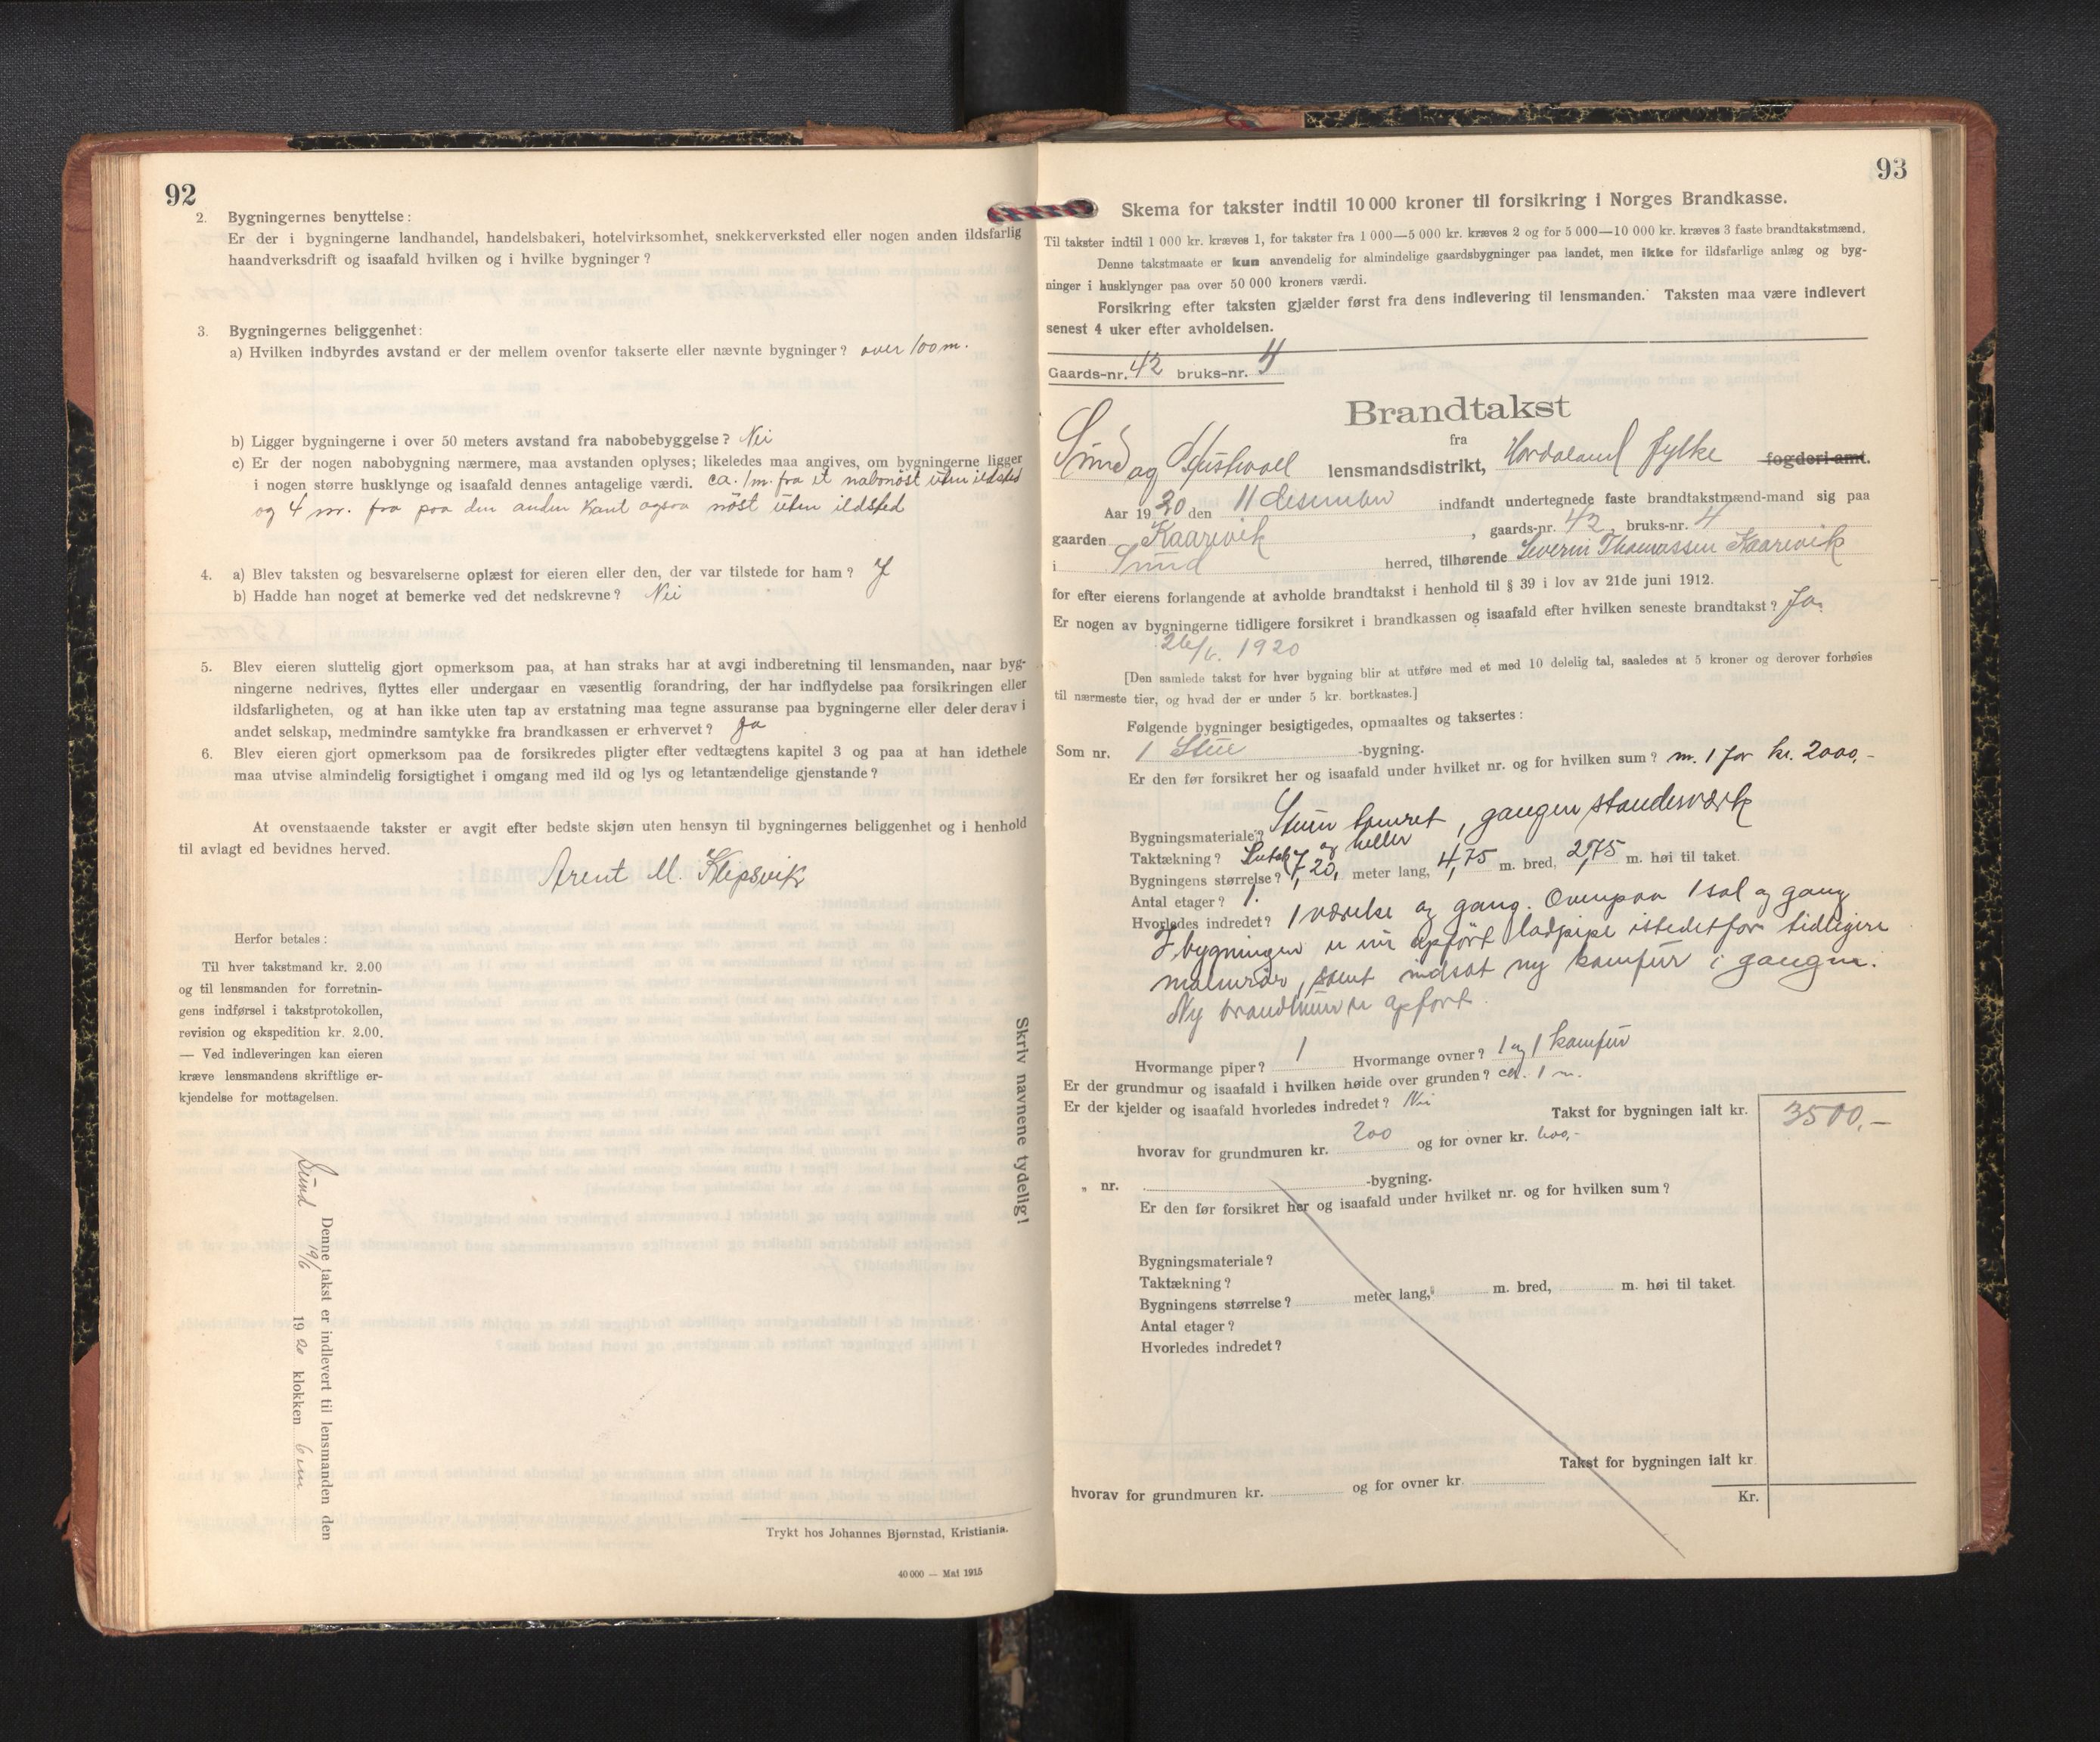 92
2. Bygningernes benyttelse:
Er der i bygningerne landhandel, handelsbakeri, hotelvirksomhet, snekkerverksted eller nogen anden ildsfarlig
haandverksdrift og isaafald hvilken og i hvilke bygninger?
3. Bygningernes beliggenhet:
a) Hvilken indbyrdes avstand er der mellem ovenfor takserte eller nævnte bygninger? over 100 m.
b) Ligger bygningerne i over 50 meters avstand fra nabobebyggelse? Nei
c) Er der nogen nabobygning nærmere, maa avstanden oplyses; likeledes maa angives, om bygningerne ligger
i nogen større husklynge og isaafald dennes antagelige værdi. ca. 1 m. fra et nabonöst üten ildsted
og 4 m. fra paa den anden kant ogsaa nöst üten ildsted
4. a) Blev taksten og besvarelserne oplæst for eieren eller den, der var tilstede for ham? J
b) Hadde han noget at bemerke ved det nedskrevne? Nei
5. Blev eieren sluttelig gjort opmerksom paa, at han straks har at avgi indberetning til lensmanden, naar byg-
ningerne nedrives, flyttes eller undergaar en væsentlig forandring, der har indflydelse paa forsikringen eller
ildsfarligheten, og at han ikke uten tap av erstatning maa tegne assuranse paa bygningerne eller deler derav i
andet selskap, medmindre samtykke fra brandkassen er erhvervet? Ja
6. Blev eieren gjort opmerksom paa de forsikredes pligter efter vedtægtens kapitel 3 og paa at han idethele
maa utvise almindelig forsigtighet i omgang med ild og lys og letantændelige gjenstande?
At ovenstaaende takster er avgit efter bedste skjøn uten hensyn til bygningernes beliggenhet og i henhold
til avlagt ed bevidnes herved.
Arent M. Klepsvik
Herfor betales:
Til hver takstmand kr. 2.00
og til lensmanden for forretnin-
gens indførsel i takstprotokollen,
revision og ekspedition kr. 2.00.
— Ved indleveringen kan eieren
kræve lensmandens skriftlige er-
kjendelse for mottagelsen.
Skriv navnene tydelig!
Denne takst er indlevert til lensmanden den
Sund 19/6 1920 klokken 6 em
Trykt hos Johannes Bjørnstad, Kristiania.
40 000 — Mai 1915
93
Skema for takster indtil 10 000 kroner til forsikring i Norges Brandkasse.
Til takster indtil 1 000 kr. kræves 1, for takster fra 1 000—5 000 kr. kræves 2 og for 5 000—10 000 kr. kræves 3 faste brandtakstmænd.
Denne takstmaate er kun anvendelig for almindelige gaardsbygninger paa landet, men ikke for ildsfarlige anlæg og byg-
ninger i husklynger paa over 50 000 kroners værdi.
Forsikring efter taksten gjælder først fra dens indlevering til lensmanden. Taksten maa være indlevert
senest 4 uker efter avholdelsen.
Gaards-nr. 42 bruks-nr. 4
Brandtakst
fra
Sund og Austevoll lensmandsdistrikt, Hordaland fylke fogderi amt.
Aar 1920 den 11 desember indfandt undertegnede faste brandtakstmænd-mand sig paa
gaarden Kaarevik, gaards-nr. 42, bruks-nr. 4
i Sund herred, tilhørende Severin Thomassen Kaarevik
for efter eierens forlangende at avholde brandtakst i henhold til § 39 i lov av 21de juni 1912.
Er nogen av bygningerne tidligere forsikret i brandkassen og isaafald efter hvilken seneste brandtakst? Ja.
26/6. 1920
[Den samlede takst for hver bygning blir at utføre med et med 10 delelig tal, saaledes at 5 kroner og derover forhøies
til nærmeste tier, og hvad der er under 5 kr. bortkastes.]
Følgende bygninger besigtigedes, opmaaltes og taksertes:
Som nr. 1 Stue -bygning.
Er den før forsikret her og isaafald under hvilket nr. og for hvilken sum? m. 1 for kr. 2000,-
Bygningsmateriale? Stuen tömret, gangen standesværk
Taktækning? og heller
Bygningens størrelse? 7,20, meter lang, 4,75 m. bred, 2,75 m. høi til taket.
Antal etager? 1.
Hvorledes indredet? 1 værelse og gang. Ovenpaa 1 sal og gang
I bygningen er nu opfört ladpipe istedetfor tidligere
malmrör, samt indsat ny komfür i gangen.
Ny brandmür er opfört.
Hvormange piper? 1 Hvormange ovner? 1 og 1 komfür
Er der grundmur og isaafald i hvilken høide over grunden? ca. 1 m.
Er der kjelder og isaafald hvorledes indredet? Nei
Takst for bygningen ialt kr. 3500,-
hvorav for grundmuren kr. 200 og for ovner kr. 600,-
„ nr. -bygning.
Er den før forsikret her og isaafald under hvilket nr. og for hvilken sum?
Bygningsmateriale?
Taktækning?
Bygningens størrelse? meter lang, m. bred, m. høi til taket.
Antal etager?
Hvorledes indredet?
Takst for bygningen ialt kr
hvorav for grundmuren kr. og for ovner kr.
Kr.